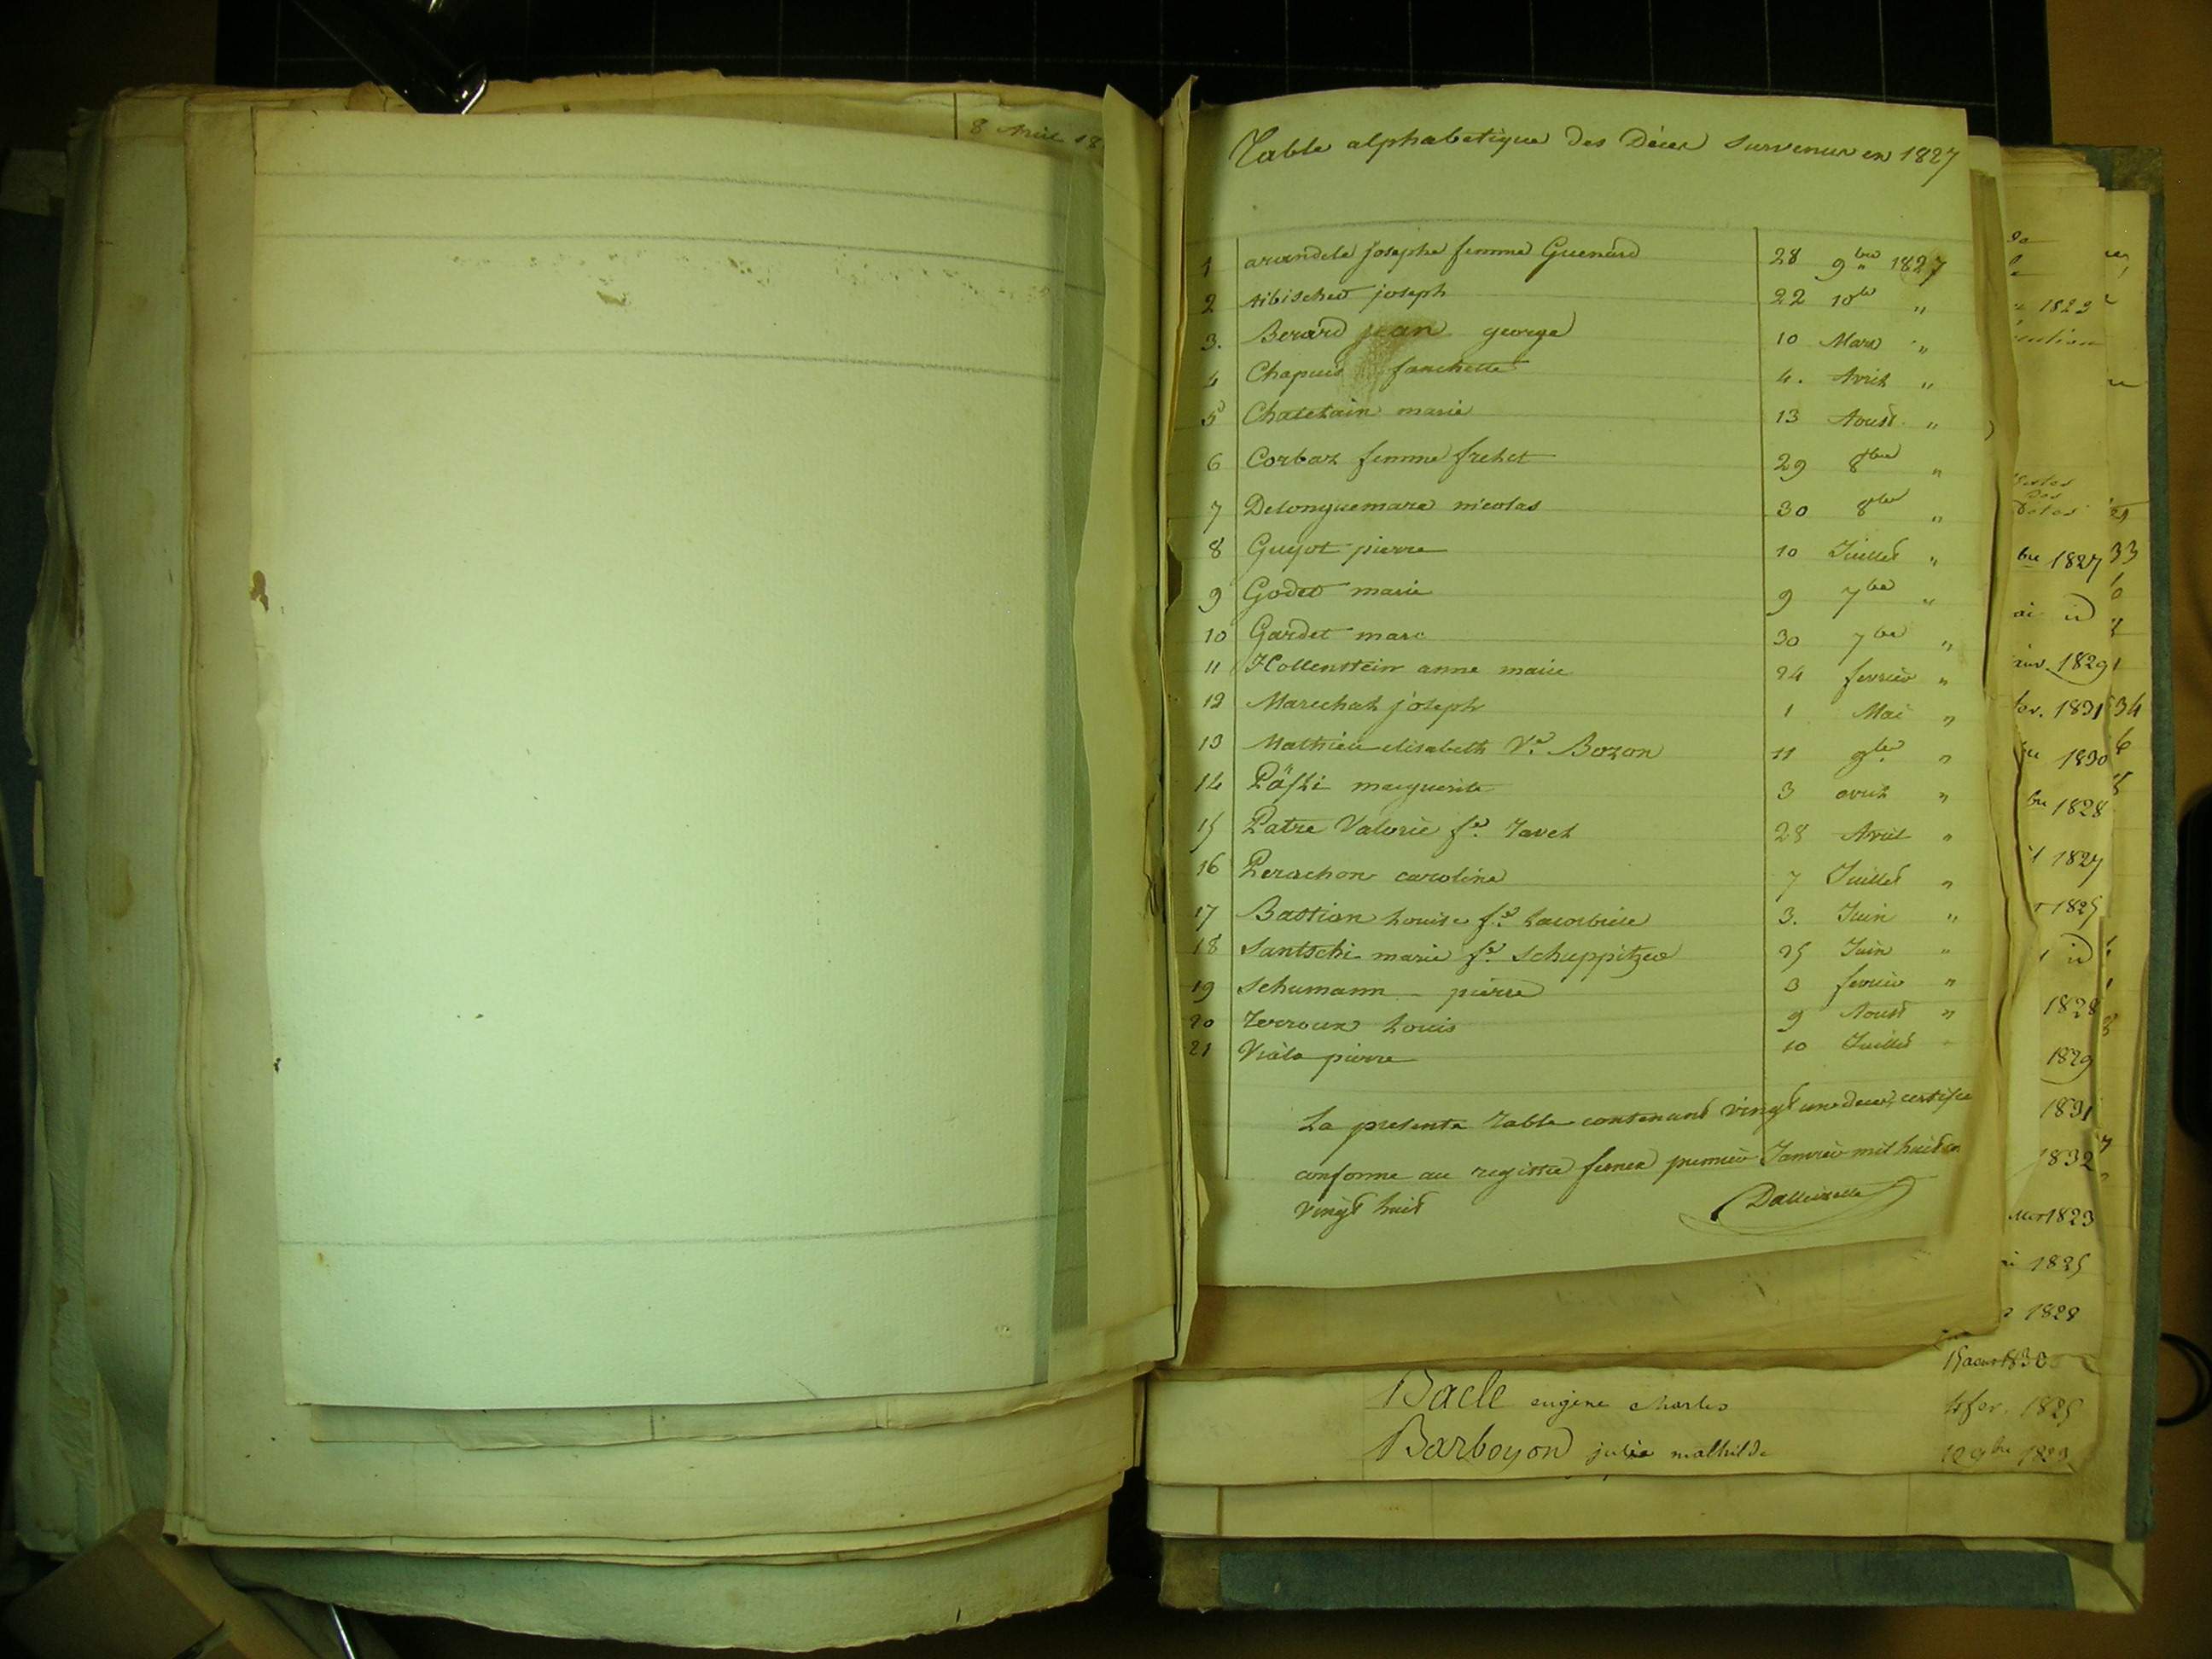 8 Avril 18
Table alphabetique des Décès survenus en 1827
1 arandele josephe femme Guenard 28 9bre 1827
2 aibischer joseph 22 10bre "
3. Berard jean george 10 Mars "
4 Chapuis fanchette 4. Avril "
5 Chatelain marie 13 Aoust "
6 Corbaz femme frelet 29 8bre "
7 Delonguemare nicolas 30 8bre "
8 Guyot pierre 10 Juillet "
9 Godet marie 9 7bre "
10 Gardet marc 30 7bre "
11 Hollenstein anne marie 24 fevrier "
12 Marechal joseph 1 Mai "
13 Mathieu elisabeth Ve. Bozon 11 9bre "
14 marguerite 3 avril "
15 Patre Valerie fe. Tavel 28 Avril "
16 Perachon caroline 7 Juillet "
17 Bastian Louise fe. Lacorbiere 3. Juin "
18 Santschi marie fe. Schuppitzer 25 Juin "
19 Schumann pierre 3 fevrier "
20 Terroux Louis 9 Aoust "
21 Viala pierre 10 Juillet "
La presente table contenant vingt une deces, certifiee
conforme au registre fermer premier Janvier mil huit cn
vingt huit
1823
bre 1827 33
ai id
1829
fev. 1831 34
1830
bre 1828
1827
1825
id
1828
1829
1831
1832
1823
1825
1828
15 aout 1830
Bacle eugène charles 4 fev. 1825
Barboyon julie mathilde 12 9bre 1823